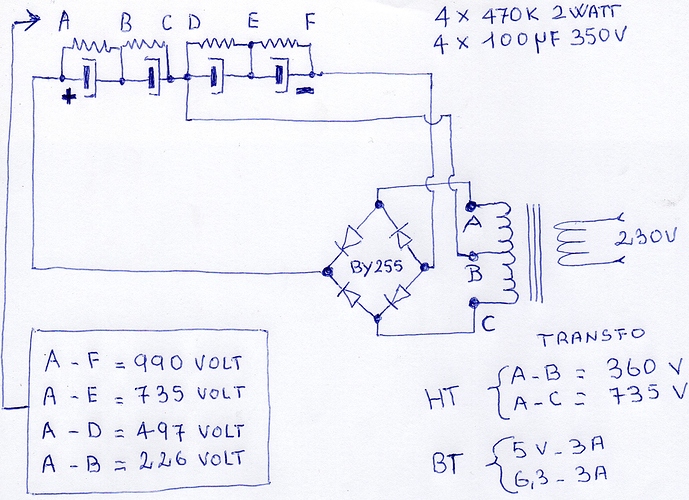 A B C D E F
4 x 470K 2WATT
4 x 100µF 350V
+
-
BY255
A
B
C
230V
TRANSFO
HT A-B = 360 V
A-C = 735 V
BT 5V-3A
6,3-3A
A-F = 990 VOLT
A-E = 735 VOLT
A-D = 497 VOLT
A-B = 226 VOLT